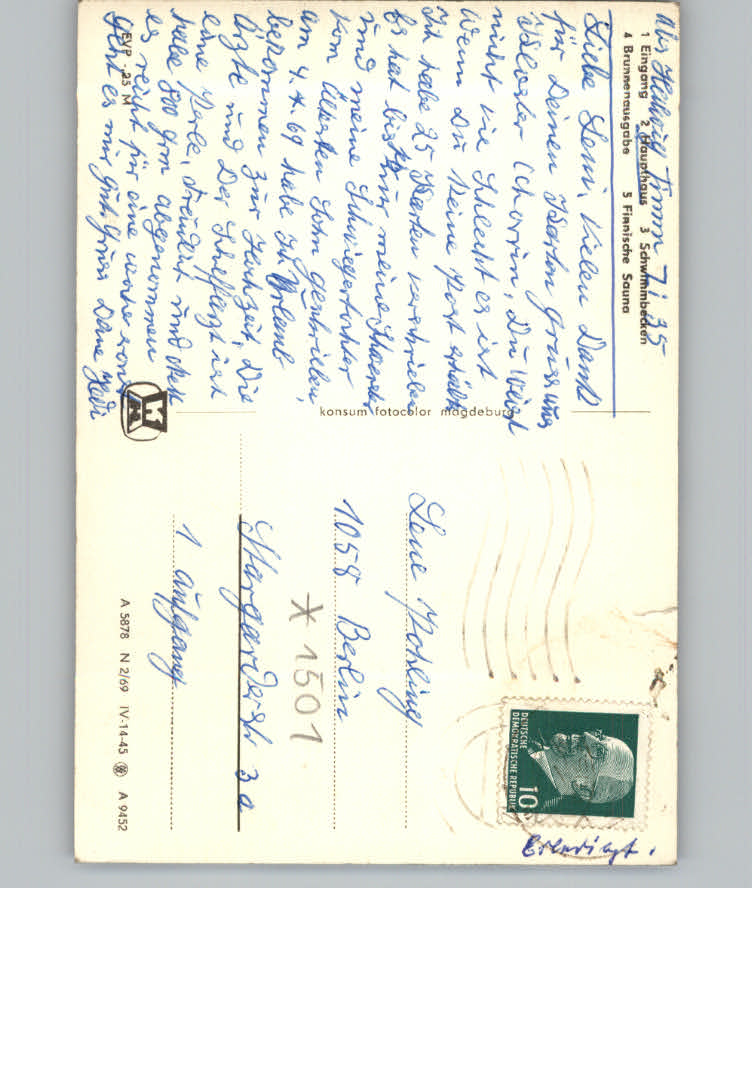 Abs Hedwig Timm 7135
1 Eingang 2 Haupthaus 3 Schwimmbecken
4 Brunnenausgabe 5 Finnische Sauna
Liebe Leni, Vielen Dank
für Deinen Karten Gruss aus
Kloster Chorin, Du weist
nicht wie Schlecht es ist
Wenn Du keine Post erhälts
Ich habe 25 Karten verschrieben
Es hat bis nur meine
und meine Schwiegertochter
vom Ältersten Sohn geschrieben,
am 4.4.69 habe Ich Urlaub
bekommen zur Hochzeit, Die
Ärzte und Der ist
eine Perle, Freundlich und nett
habe 800 grm abgenommen
es reicht für eine woche sonst
Geht es mir gut Gruss Deine Hedi
EVP -25 M
konsum fotocolor magdeburg
Lene Pohling
1058 Berlin
* 1501
Stargarderstr 3a
1 aufgang
A 5878 N 2/69 IV-14-45 A 9452
DEUTSCHE
DEMOKRATISCHE REPUBLIK
10
Erledigt.